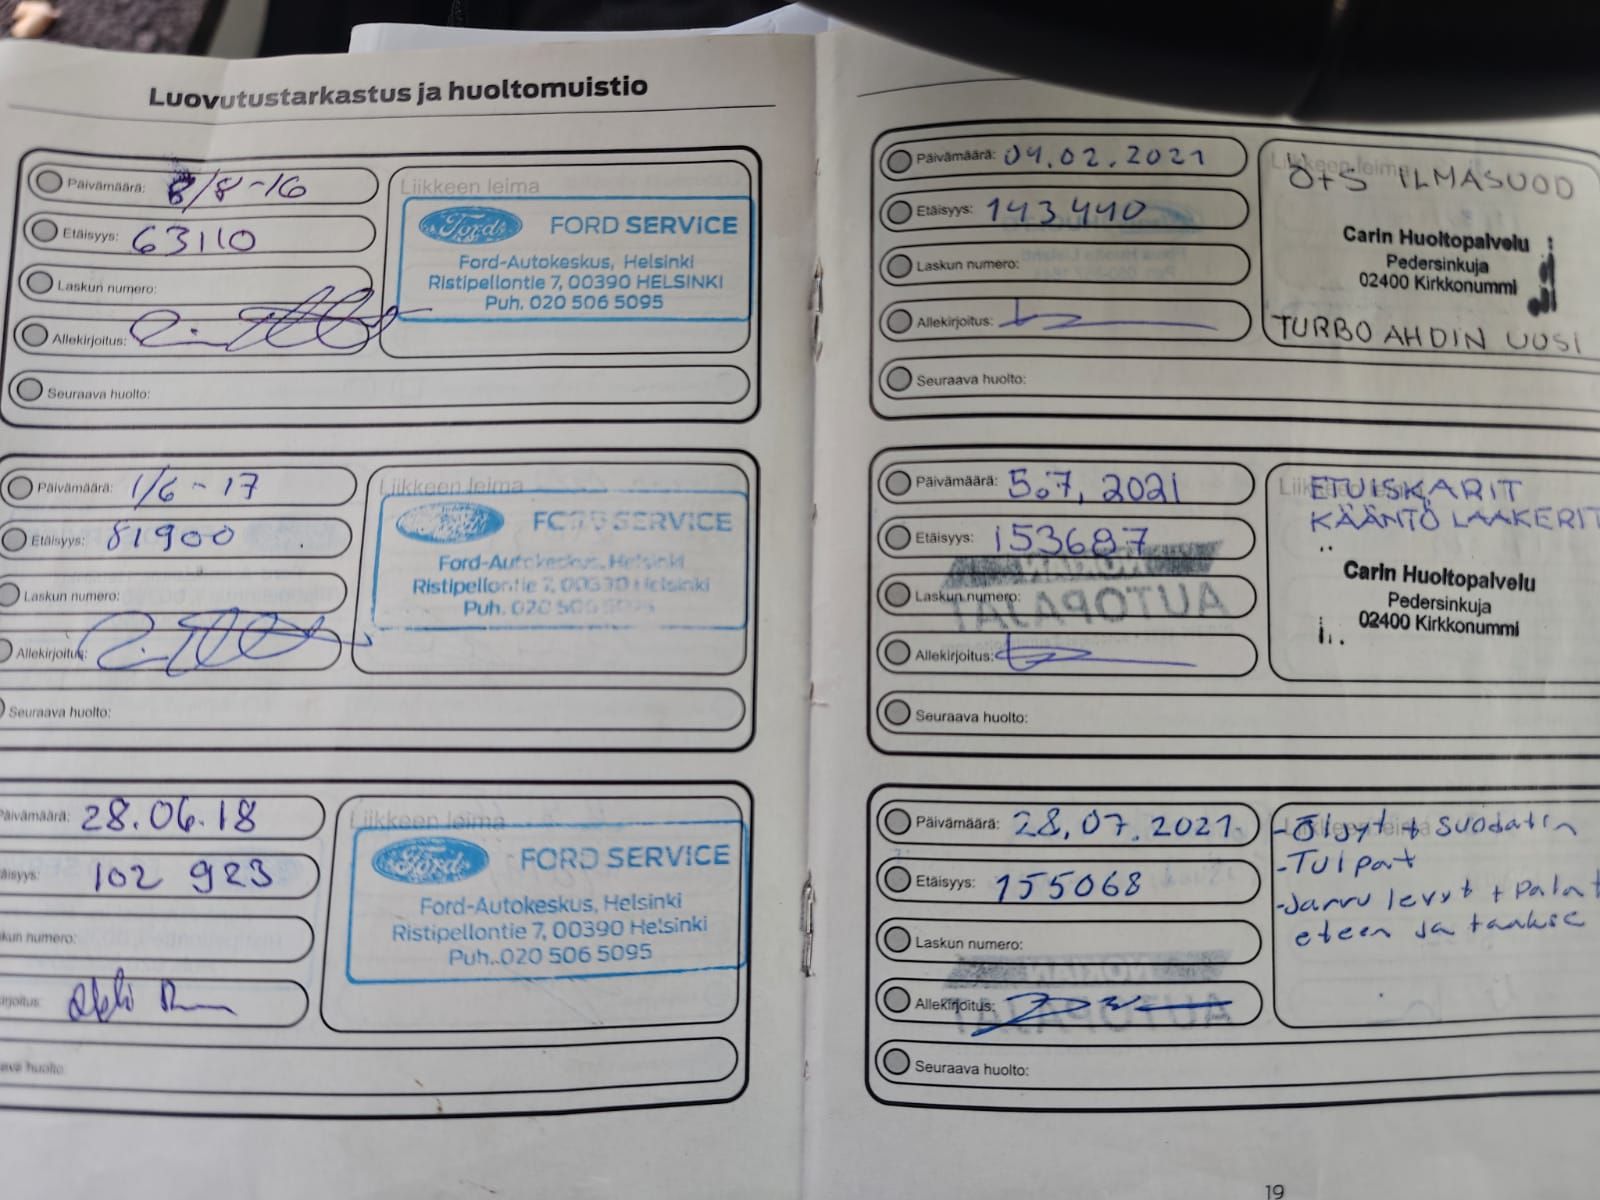 Luovutustarkastus ja huoltomuistio
Päivämäärä: 8/8-16
Etäisyys: 63110
Laskun numero:
Allekirjoitus:
Seuraava huolto:
Liikkeen leima
Ford FORD SERVICE
Ford-Autokeskus, Helsinki
Ristipellontie 7, 00390 HELSINKI
Puh. 020 506 5095
Päivämäärä: 1/6-17
Etäisyys: 81900
Laskun numero:
Allekirjoitus:
Seuraava huolto:
Liikkeen leima
FORD SERVICE
Ford-Autokeskus, Helsinki
Ristipellontie 7, 00390 Helsinki
Puh. 020 506 5095
Päivämäärä: 28.06.18
äisyys: 102 923
kun numero:
kirjoitus:
ava huolto:
Liikkeen leima
Ford FORD SERVICE
Ford-Autokeskus, Helsinki
Ristipellontie 7, 00390 Helsinki
Puh. 020 506 5095
Päivämäärä: 04.02.2021
Etäisyys: 143440
Laskun numero:
Allekirjoitus:
Seuraava huolto:
Liikkeen leima
Ö+S ILMASUOD
Carin Huoltopalvelu
Pedersinkuja
02400 Kirkkonummi
TURBO AHDIN UUSI
Päivämäärä: 5.7.2021
Etäisyys: 153687
Laskun numero:
Allekirjoitus:
Seuraava huolto:
ETUISKARIT
KÄÄNTÖ LAAKERIT
Carin Huoltopalvelu
Pedersinkuja
02400 Kirkkonummi
AUTOPAJAT
Päivämäärä: 28.07.2021
Etäisyys: 155068
Laskun numero:
Allekirjoitus:
Seuraava huolto:
-Öljyt + suodatin
-Tulpat
-Jarru levyt + palat
eteen ja taakse
AUTOPAJAT
19